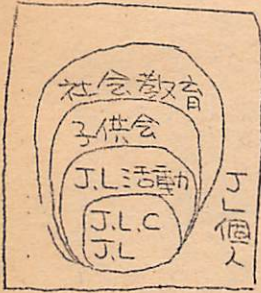 社会教育
子供会
J.L活動
J.L.C
J.L
JL個人